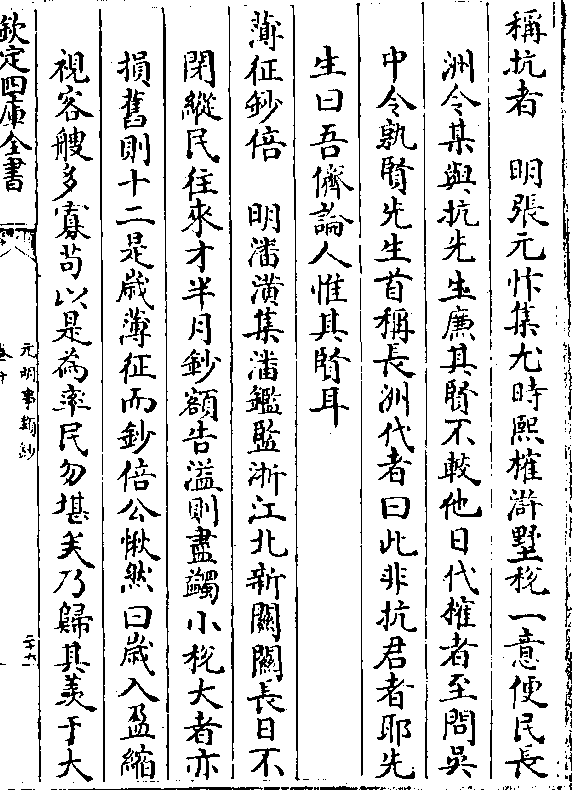 稱抗者　明張元忭集尤時熙榷滸墅稅一意便民長
洲令某與抗先生廉其賢不較他日代榷者至問吳
中令孰賢先生首稱長洲代者曰此非抗君者耶先
生曰吾儕論人惟其賢耳
薄征鈔倍　明潘潢集潘鑑監浙江北新關關長日不
閉縱民往來才半月鈔額告溢則盡蠲小稅大者亦
損舊則十二是歲薄征而鈔倍公愀然曰歲入盈縮
視客艘多寡苟以是為率民勿堪矣乃歸其羡于大
欽定四庫全書
元明事類鈔
二十六